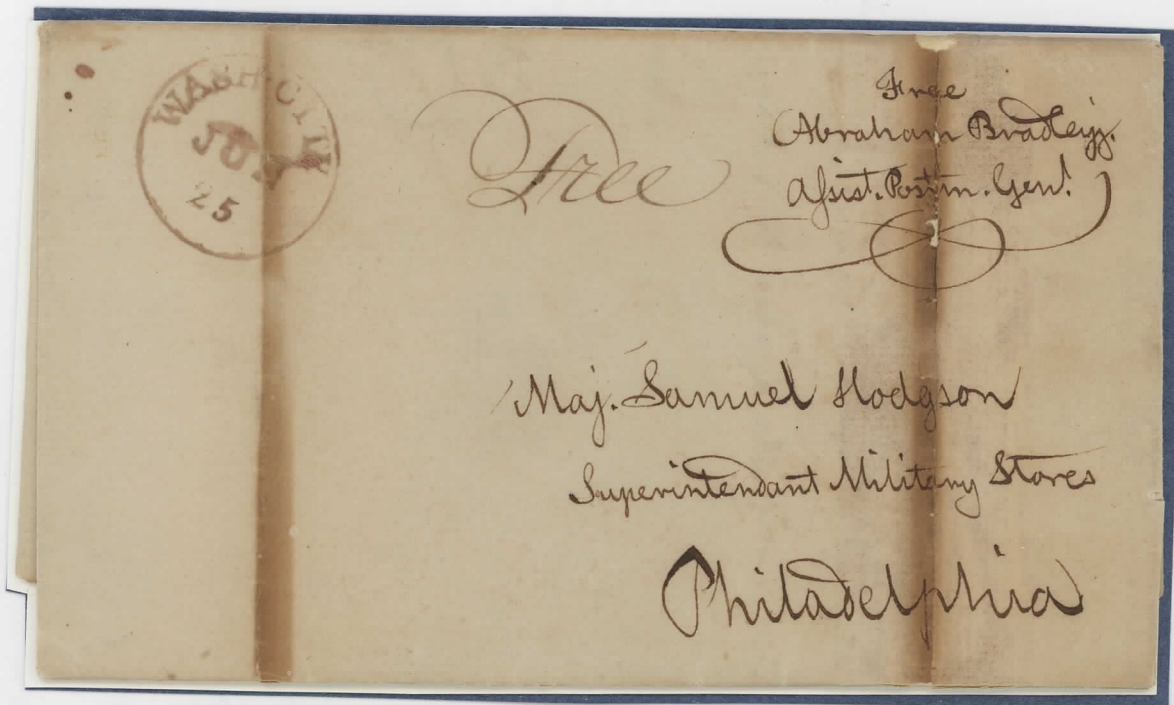 WASH. CITY
25
Free
Free
Abraham Bradley jr.
Assist. Postm. Genl.
Maj. Samuel Hodgson
Superintendant Military Stores
Philadelphia